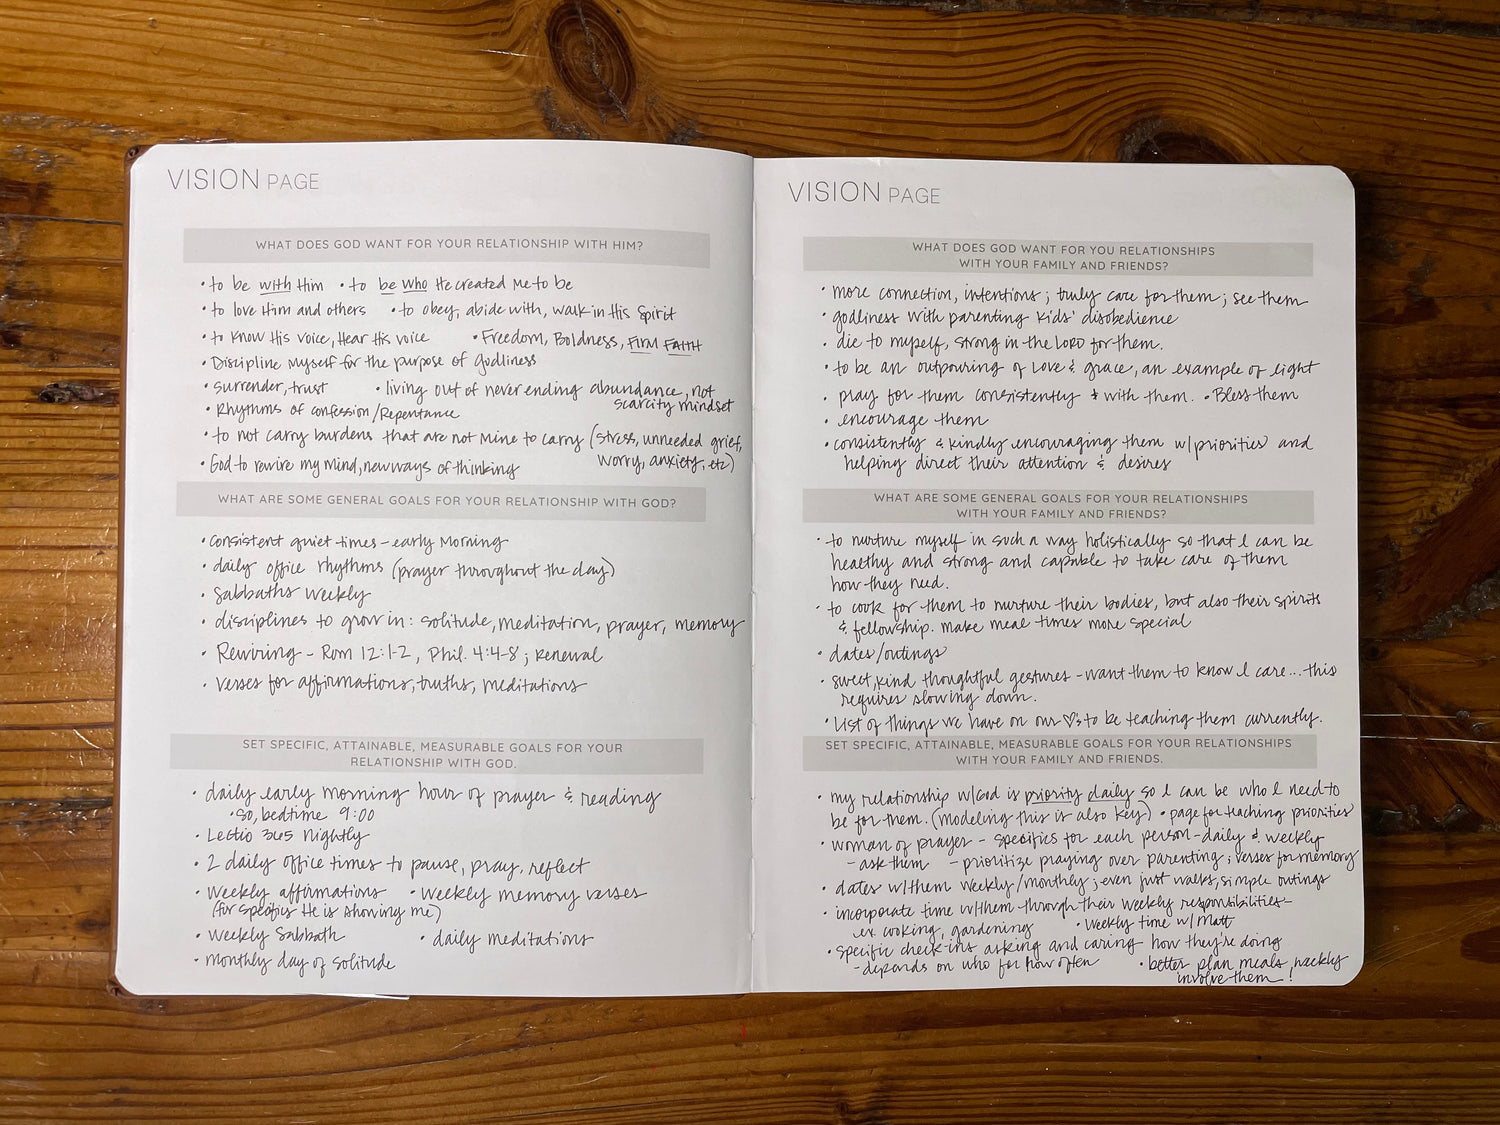 VISION PAGE
WHAT DOES GOD WANT FOR YOUR RELATIONSHIP WITH HIM?
• to be with Him • to be who He created me to be
• to love Him and others • to obey, abide with, walk in His Spirit
• to know His voice, Hear His voice • Freedom, Boldness, Firm FAITH
• Discipline myself for the purpose of Godliness
• surrender, trust • living out of never ending abundance, not
scarcity mindset
• Rhythms of confession/Repentance
• to not carry burdens that are not mine to carry (stress, unneeded grief,
worry, anxiety, etc)
• God to rewire my mind, new ways of thinking
WHAT ARE SOME GENERAL GOALS FOR YOUR RELATIONSHIP WITH GOD?
• consistent quiet times - early morning
• daily office rhythms (prayer throughout the day)
• Sabbaths weekly
• disciplines to grow in: solitude, meditation, prayer, memory
• Rewiring - Rom 12:1-2, Phil. 4:4-8; renewal
• verses for affirmations, truths, meditations
SET SPECIFIC, ATTAINABLE, MEASURABLE GOALS FOR YOUR
RELATIONSHIP WITH GOD.
• daily early morning hour of prayer & reading
• so, bedtime 9:00
• Lectio 365 nightly
• 2 daily office times to pause, pray, reflect
• weekly affirmations • weekly memory verses
(for specifics He is showing me)
• weekly Sabbath • daily meditations
• monthly day of solitude
VISION PAGE
WHAT DOES GOD WANT FOR YOU RELATIONSHIPS
WITH YOUR FAMILY AND FRIENDS?
• more connection, intentions; truly care for them; see them
• godliness with parenting kids' disobedience
• die to myself, strong in the LORD for them.
• to be an outpouring of love & grace, an example of light
• pray for them consistently & with them. • Bless them
• encourage them
• consistently & kindly encouraging them w/priorities and
helping direct their attention & desires
WHAT ARE SOME GENERAL GOALS FOR YOUR RELATIONSHIPS
WITH YOUR FAMILY AND FRIENDS?
• to nurture myself in such a way holistically so that I can be
healthy and strong and capable to take care of them
how they need.
• to cook for them to nurture their bodies, but also their spirits
& fellowship. make meal times more special
• dates/outings
• sweet, kind thoughtful gestures - want them to know I care... this
requires slowing down.
• List of things we have on our ♡s to be teaching them currently.
SET SPECIFIC, ATTAINABLE, MEASURABLE GOALS FOR YOUR RELATIONSHIPS
WITH YOUR FAMILY AND FRIENDS.
• my relationship w/God is priority daily so I can be who I need to
be for them. (modeling this is also key) • page for teaching priorities
• woman of prayer - specifics for each person - daily & weekly
- ask them - prioritize praying over parenting; verses for memory
• dates w/them weekly/monthly; even just walks, simple outings
• incorporate time w/them through their weekly responsibilities -
ex. cooking, gardening • weekly time w/ Matt
• specific check-ins asking and caring how they're doing
- depends on who for how often • better plan meals, weekly
involve them!